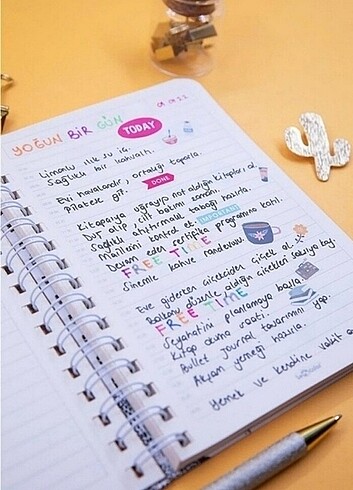 YOĞUN BİR GÜN
TODAY
Limonlu ılık su iç.
Sağlıklı bir kahvaltı.
Evi havalandır, ortalığı toparla.
Pilatese git.
DONE
Kitapçıya uğrayıp not aldığın kitapları al.
Duş alıp cilt bakımı zamanı.
Sağlıklı atıştırmalık tabağı hazırla.
Mailleri kontrol et.
IMPORTANT
Devam eden sertifika programına katıl.
FREE TIME
Sinemle kahve randevusu.
Eve giderken çiçekçiden çiçek al.
Balkonu düzenle aldığın çiçekleri saksıya koy.
FREE TIME
Seyahatini planlamaya başla.
Kitap okuma saati.
Bullet journal tasarımını yap.
Akşam yemeği hazırla.
Yemek ve kendine vakit